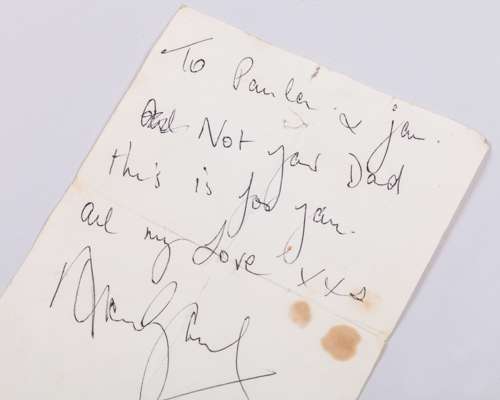 To Paula & Jan.
Not your Dad
this is for you.
all my Love xxs